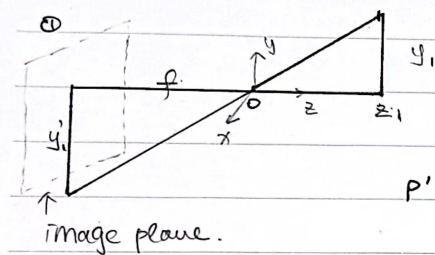 ①
y
y₁
f
O
z
z₁
x
y₁'
P'
image plane.